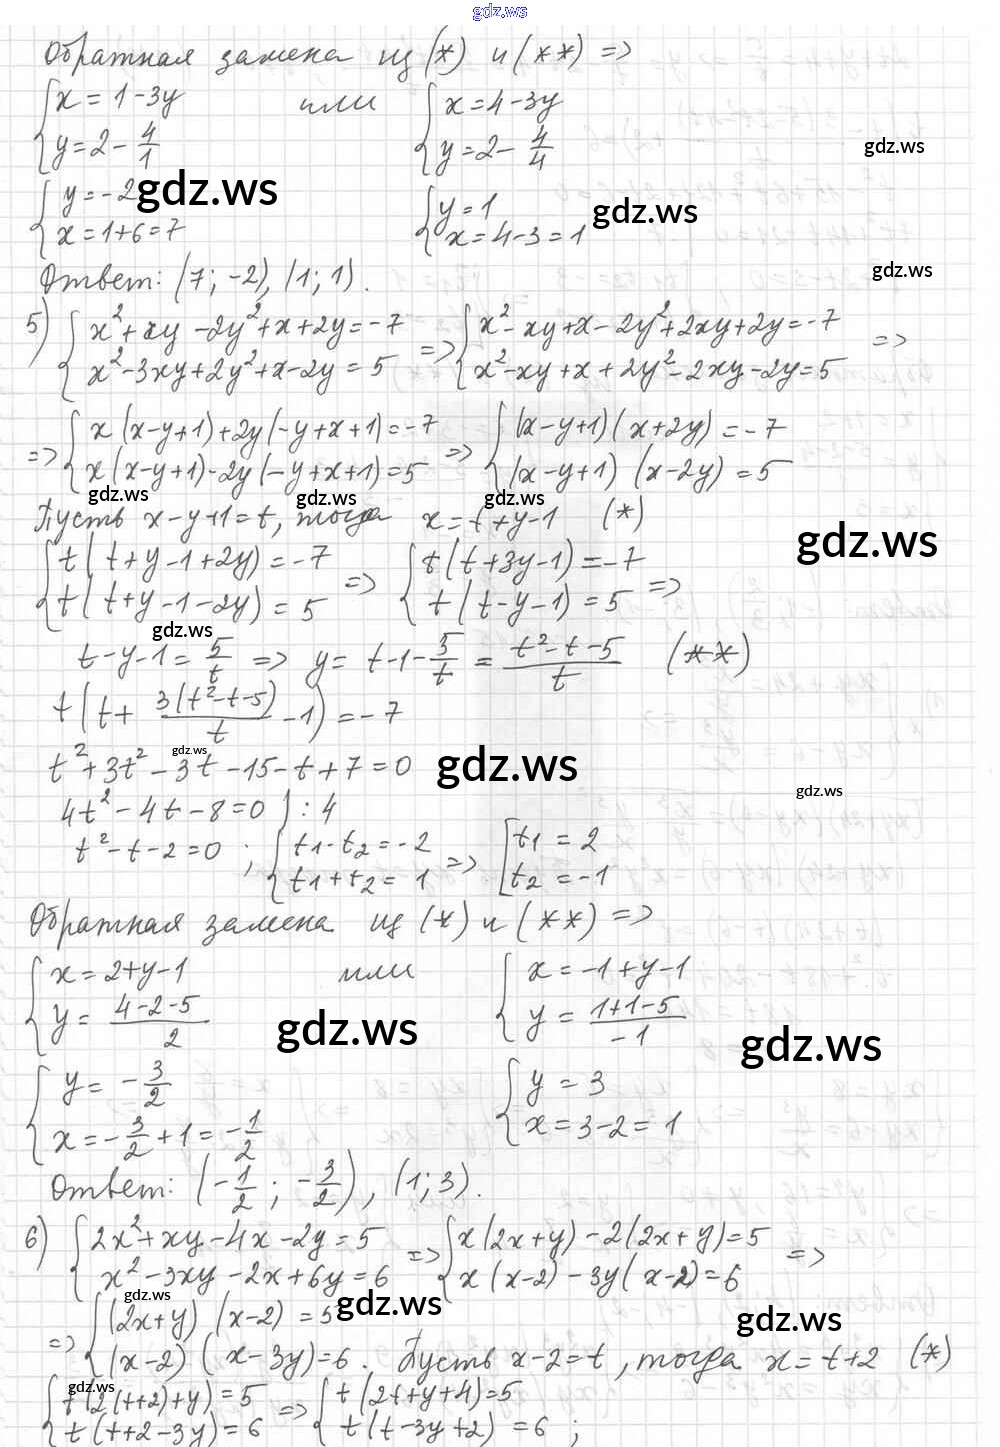 gdz.ws
Обратная замена из (*) и (**) =>
{ x = 1 - 3y или { x = 4 - 3y
{ y = 2 - 4/1 { y = 2 - 4/4
gdz.ws
{ y = -2 { y = 1
gdz.ws gdz.ws
{ x = 1 + 6 = 7 { x = 4 - 3 = 1
Ответ: (7; -2), (1; 1).
gdz.ws
5) { x² + xy - 2y² + x + 2y = -7 => { x² - xy + x - 2y² + 2xy + 2y = -7 =>
{ x² - 3xy + 2y² + x - 2y = 5 { x² - xy + x + 2y² - 2xy - 2y = 5
=> { x(x - y + 1) + 2y(-y + x + 1) = -7 => { (x - y + 1)(x + 2y) = -7
{ x(x - y + 1) - 2y(-y + x + 1) = 5 { (x - y + 1)(x - 2y) = 5
gdz.ws gdz.ws gdz.ws
Пусть x - y + 1 = t, тогда x = t + y - 1 (*)
gdz.ws
{ t(t + y - 1 + 2y) = -7 => { t(t + 3y - 1) = -7 =>
{ t(t + y - 1 - 2y) = 5 { t(t - y - 1) = 5
gdz.ws
t - y - 1 = 5/t => y = t - 1 - 5/t = (t² - t - 5)/t (**)
t(t + 3(t² - t - 5)/t - 1) = -7
gdz.ws
t² + 3t² - 3t - 15 - t + 7 = 0
gdz.ws gdz.ws
4t² - 4t - 8 = 0 ) : 4
t² - t - 2 = 0 ; { t1 - t2 = -2 => [ t1 = 2
{ t1 + t2 = 1 [ t2 = -1
Обратная замена из (*) и (**) =>
{ x = 2 + y - 1 или { x = -1 + y - 1
{ y = (4 - 2 - 5)/2 { y = (1 + 1 - 5)/-1
gdz.ws gdz.ws
{ y = -3/2 { y = 3
{ x = -3/2 + 1 = -1/2 { x = 3 - 2 = 1
Ответ: (-1/2; -3/2), (1; 3).
6) { 2x² + xy - 4x - 2y = 5 => { x(2x + y) - 2(2x + y) = 5 =>
{ x² - 3xy - 2x + 6y = 6 { x(x - 2) - 3y(x - 2) = 6
gdz.ws gdz.ws gdz.ws
=> { (2x + y)(x - 2) = 5
{ (x - 2)(x - 3y) = 6. Пусть x - 2 = t, тогда x = t + 2 (*)
gdz.ws
{ t(2(t + 2) + y) = 5 => { t(2t + y + 4) = 5
{ t(t + 2 - 3y) = 6 { t(t - 3y + 2) = 6 ;